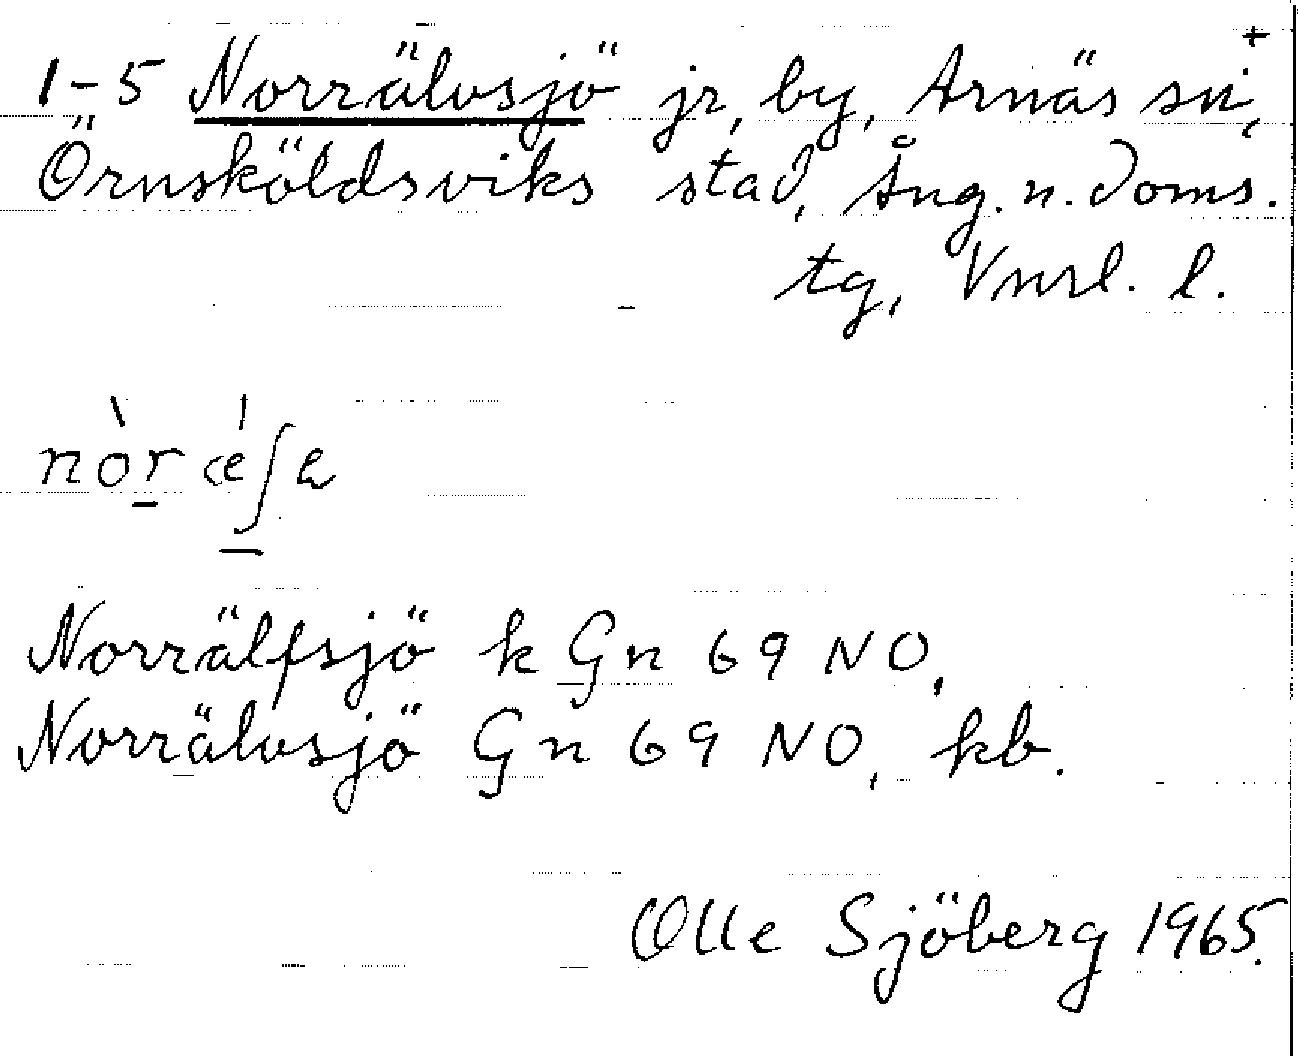 1-5 Norrälvsjö jr, by, Arnäs sn,
Örnsköldsviks stad, Ång. n. doms.
tg, Vnrl. l.
Norrälfsjö k Gn 69 NO,
Norrälvsjö Gn 69 NO, kb.
Olle Sjöberg 1965.